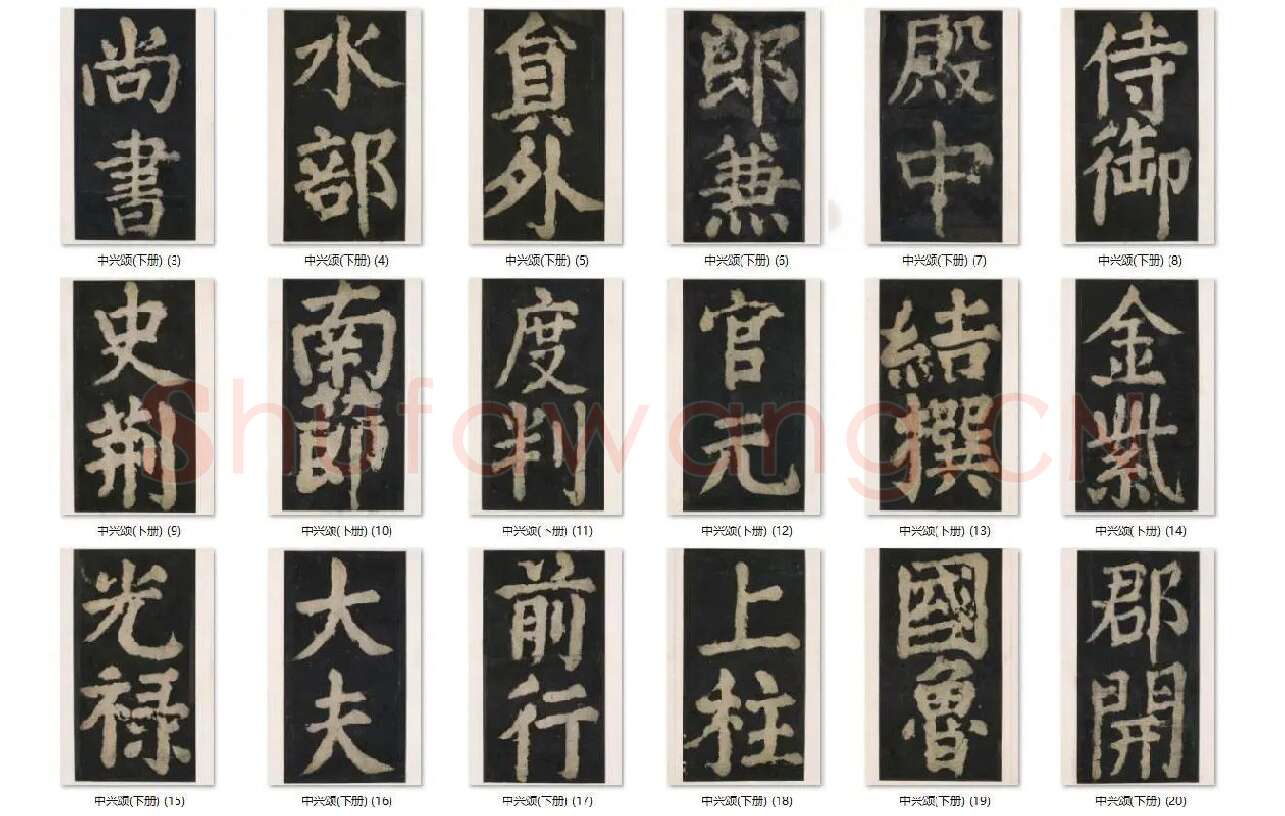 尚書
水部
貟外
郎兼
殿中
侍御
中兴颂(下册) (3)
中兴颂(下册) (4)
中兴颂(下册) (5)
中兴颂(下册) (6)
中兴颂(下册) (7)
中兴颂(下册) (8)
史荆
南節
度判
官元
結撰
金紫
Shufawang.CN
中兴颂(下册) (9)
中兴颂(下册) (10)
中兴颂(下册) (11)
中兴颂(下册) (12)
中兴颂(下册) (13)
中兴颂(下册) (14)
光禄
大夫
前行
上柱
國魯
郡開
中兴颂(下册) (15)
中兴颂(下册) (16)
中兴颂(下册) (17)
中兴颂(下册) (18)
中兴颂(下册) (19)
中兴颂(下册) (20)